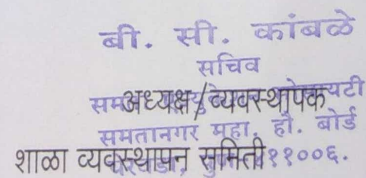 बी. सी. कांबळे
सचिव
अध्यक्ष/व्यवस्थापक
समतानगर महा. हौ. बोर्ड
शाळा व्यवस्थापन समिती
११००६.